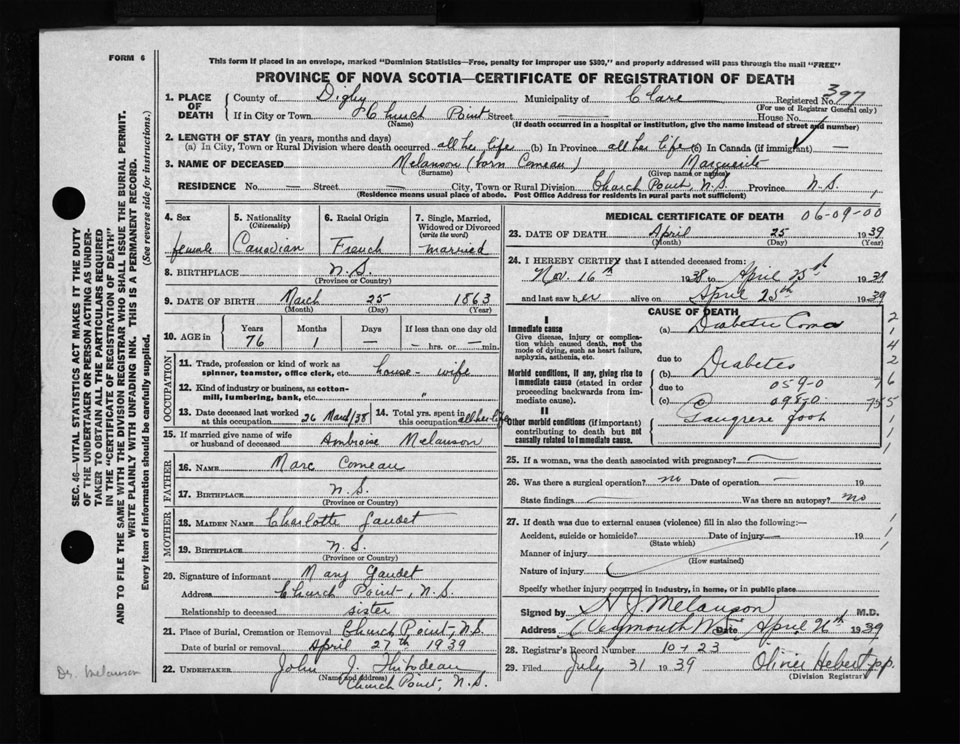 FORM 6
This form if placed in an envelope, marked "Dominion Statistics—Free, penalty for improper use $300," and properly addressed will pass through the mail "FREE"
PROVINCE OF NOVA SCOTIA—CERTIFICATE OF REGISTRATION OF DEATH
1. PLACE OF DEATH County of Digby Municipality of Clare Registered No. 397
(For use of Registrar General only)
If in City or Town Church Point Street — House No.
(Name) (If death occurred in a hospital or institution, give the name instead of street and number)
2. LENGTH OF STAY (in years, months and days)
(a) In City, Town or Rural Division where death occurred all her life (b) In Province all her life (c) In Canada (if immigrant) —
3. NAME OF DECEASED Melanson (born Comeau) Marguerite
(Surname) (Given name or names)
RESIDENCE No. — Street — City, Town or Rural Division Church Point, N.S. Province N.S.
(Residence means usual place of abode. Post Office Address for residents in rural parts not sufficient)
4. Sex female
5. Nationality (Citizenship) Canadian
6. Racial Origin French
7. Single, Married, Widowed or Divorced (write the word) married
8. BIRTHPLACE N.S.
(Province or Country)
9. DATE OF BIRTH March 25 1863
(Month) (Day) (Year)
10. AGE in Years 76 Months 1 Days — If less than one day old — hrs. or — min.
OCCUPATION
11. Trade, profession or kind of work as spinner, teamster, office clerk, etc. house-wife
12. Kind of industry or business, as cotton-mill, lumbering, bank, etc. "
13. Date deceased last worked at this occupation 26 March/38 14. Total yrs. spent in this occupation all her life
15. If married give name of wife or husband of deceased Ambroise Melanson
FATHER
16. NAME Marc Comeau
17. BIRTHPLACE N.S.
(Province or Country)
MOTHER
18. MAIDEN NAME Charlotte Gaudet
19. BIRTHPLACE N.S.
(Province or Country)
20. Signature of informant Mary Gaudet
Address Church Point, N.S.
Relationship to deceased sister
21. Place of Burial, Cremation or Removal Church Point, N.S.
Date of burial or removal April 27th 1939
22. UNDERTAKER John J. Thibodeau
(Name and address) Church Point, N.S.
MEDICAL CERTIFICATE OF DEATH 06-09-00
23. DATE OF DEATH April 25 1939
(Month) (Day) (Year)
24. I HEREBY CERTIFY that I attended deceased from:
Nov. 16th 1938 to April 25th 1939
and last saw her alive on April 25th 1939
CAUSE OF DEATH
I
Immediate cause
Give disease, injury or complication which caused death, not the mode of dying, such as heart failure, asphyxia, asthenia, etc.
(a) Diabetic Coma
due to
Morbid conditions, if any, giving rise to immediate cause (stated in order proceeding backwards from immediate cause).
(b) Diabetes
due to 059-0
(c) 098-0
II
Other morbid conditions (if important) contributing to death but not causally related to immediate cause.
Gangrene foot
25. If a woman, was the death associated with pregnancy? —
26. Was there a surgical operation? no Date of operation —
State findings — Was there an autopsy? no
27. If death was due to external causes (violence) fill in also the following:—
Accident, suicide or homicide? Date of injury — 19
(State which)
Manner of injury
(How sustained)
Nature of injury
Specify whether injury occurred in industry, in home, or in public place
Signed by H J Melanson M.D.
Address Weymouth Date April 26th 1939
28. Registrar's Record Number 1023
29. Filed July 31 1939 Olivier Hebert
(Division Registrar)
SEC. 46—VITAL STATISTICS ACT MAKES IT THE DUTY
OF THE UNDERTAKER OR PERSON ACTING AS UNDER-
TAKER TO OBTAIN ALL THE PARTICULARS REQUIRED
IN THE "CERTIFICATE OF REGISTRATION OF DEATH"
AND TO FILE THE SAME WITH THE DIVISION REGISTRAR WHO SHALL ISSUE THE BURIAL PERMIT.
WRITE PLAINLY WITH UNFADING INK. THIS IS A PERMANENT RECORD.
Every item of information should be carefully supplied. (See reverse side for instructions.)
Dr. Melanson